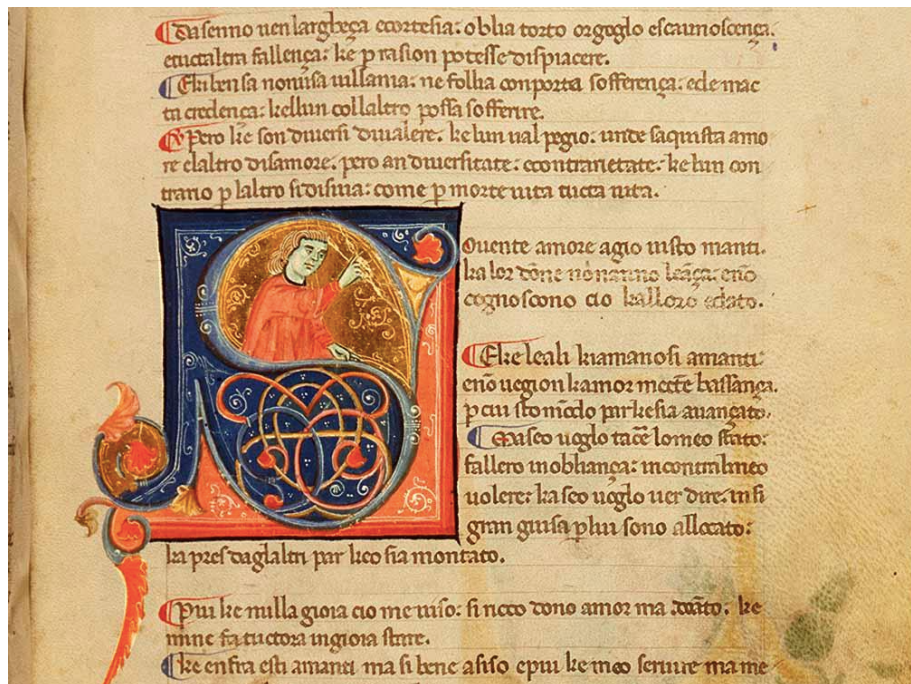 Da senno uen largheça ecortesia: oblia torto orgoglo escaunoscença.
etuctaltra fallença: ke p rasion potesse dispiacere.
Ekiben sa non usa uillania: ne follia comporta sofferença: ede mac
ta credença: kellun collaltro possa sofferire.
Pero ke son diuersi diualere. ke lun ual pegio: unde saquista amo
re elaltro disamore. pero an diuersitate: econtrarietate: ke lun con
trario p laltro sidisuia: come p morte uita tucta uita.
Souente amore agio uisto manti.
ka lor dōne nō anno leāça: enō
cognoscono cio kalloro edato.
Eke leali kiamanosi amanti:
enō uegion kamor mecte bassança.
p cui sto mōdo par kesia auançato.
Maseo uoglo tacē lomeo stato:
fallero inobliança: incontralmeo
uolere: ka seo uoglo uer dire. insi
gran guisa plui sono allocato:
ka pres daglaltri par keo sia montato.
Pui ke nulla gioia cio me uiso: si ricco dono amor ma donato. ke
mine fa tuctora ingioia stare.
ke enfra esti amanti ma si bene asiso epui ke meo seruire ma me